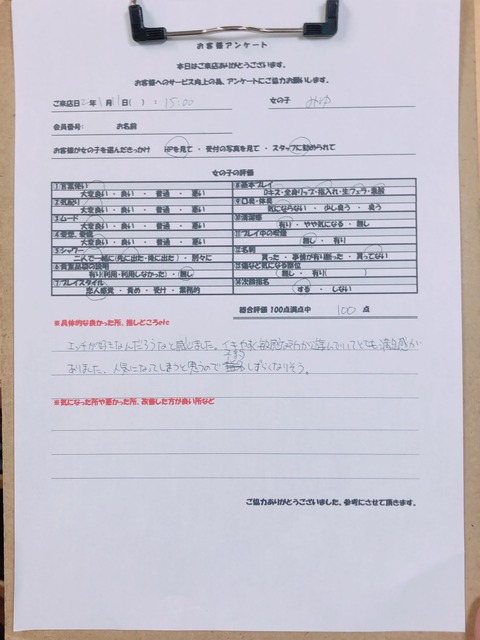 お客様アンケート
本日はご来店ありがとうございます。
お客様へのサービス向上の為、アンケートにご協力お願いします。
ご来店日 年 1月 日( ) : 15:00 女の子 みゆ
会員番号: お名前
お客様が女の子を選んだきっかけ HPを見て ・ 受付の写真を見て ・ スタッフに勧められて
女の子の評価
1 言葉使い
大変良い ・ 良い ・ 普通 ・ 悪い
2 気配り
大変良い ・ 良い ・ 普通 ・ 悪い
3 ムード
大変良い ・ 良い ・ 普通 ・ 悪い
4 愛想、愛嬌
大変良い ・ 良い ・ 普通 ・ 悪い
5 シャワー
二人で一緒に(先に出た・後に出た) ・ 別々に
6 貴重品袋の説明
有り(利用・利用しなかった) ・ 無し
7 プレイスタイル
恋人感覚 ・ 責め ・ 受け ・ 業務的
8 基本プレイ
Dキス・全身リップ・指入れ・生フェラ・素股
9 口臭・体臭
気にならない ・ 少し臭う ・ 臭う
10 清潔感
有り ・ やや気になる ・ 無し
11 プレイ中の喫煙
無し ・ 有り
12 名刺
貰った ・ 事情が有り断った ・ 貰ってない
13 傷など気になる部位
( 無し ・ 有り( )
14 次回指名
する ・ しない
総合評価 100点満点中 100 点
※具体的な良かった所、推しどころetc
エッチが好きなんだろうなと感じました。イキやすく敏感な所が
とても満足感が
ありました。人気になってしまうと思うので 予約 しずらくなりそう。
※気になった所や悪かった所、改善した方が良い所など
ご協力ありがとうございました。参考にさせて頂きます。